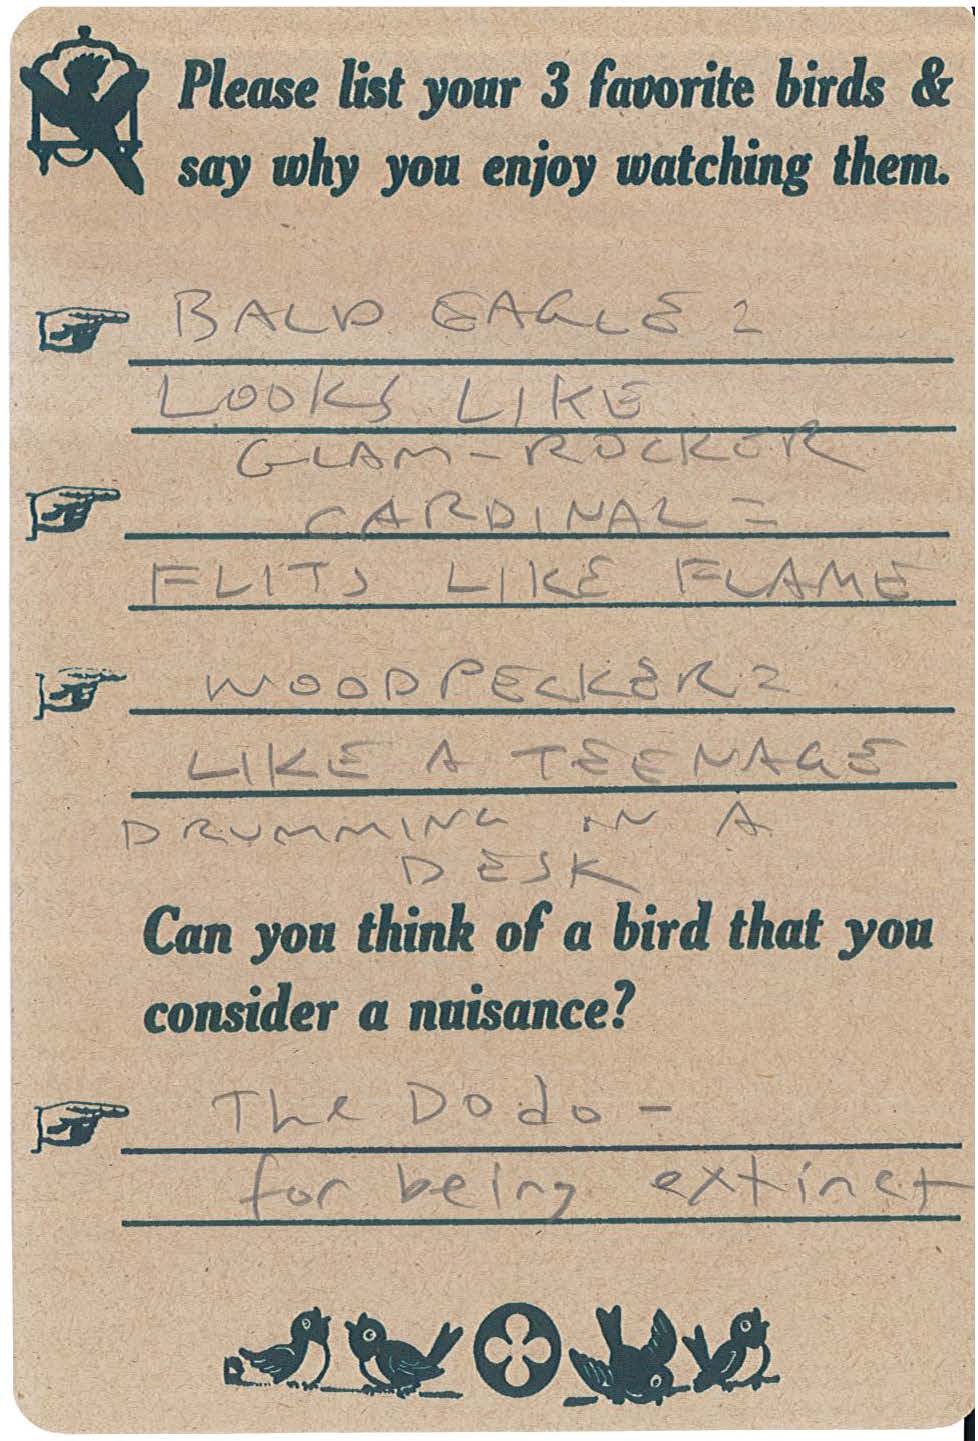 Please list your 3 favorite birds &
say why you enjoy watching them.
BALD EAGLE =
LOOKS LIKE
GLAM-ROCKER
CARDINAL =
FLITS LIKE FLAME
WOODPECKER =
LIKE A TEENAGE
DRUMMING IN A
DESK
Can you think of a bird that you
consider a nuisance?
The Dodo -
for being extinct